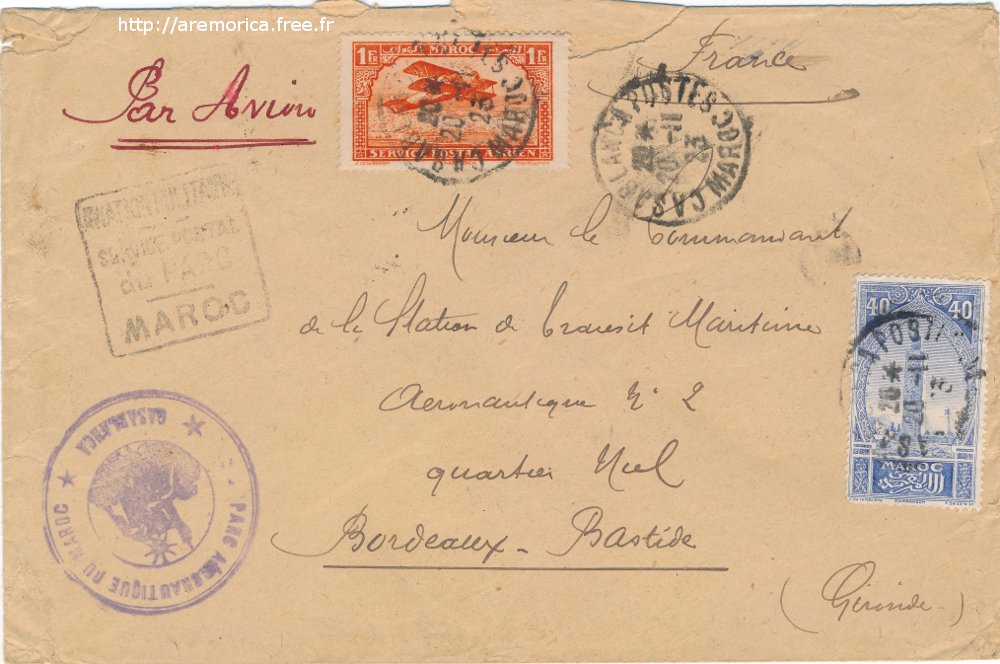 http://aremorica.free.fr
Par Avion
France
1FR MAROC 1FR
SERVICE POSTE AERIEN
CASABLANCA POSTES
MAROC
20 *
20 -11
23
CASABLANCA POSTES
MAROC
20 *
20 -11
23
AVIATION MILITAIRE
SERVICE POSTAL
du PARC
MAROC
Monsieur le Commandant
de la Station de Transit Maritime
Aeronautique N° 2
quartier Niel
Bordeaux - Bastide
(Gironde)
40 40
MAROC
20 *
20 -11
PARC AÉRONAUTIQUE DU MAROC
CASABLANCA